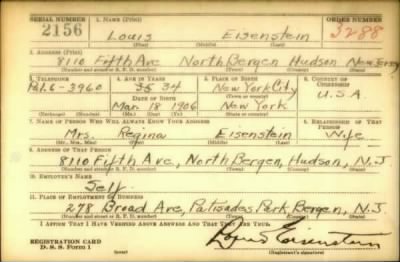 SERIAL NUMBER 1. NAME (Print) ORDER NUMBER
2156 Louis Eisenstein 3288
(First) (Middle) (Last)
2. ADDRESS (Print)
8110 Fifth Ave North Bergen Hudson New Jersey
(Number and street or R. F. D. number) (Town) (County) (State)
3. TELEPHONE 4. AGE IN YEARS 5. PLACE OF BIRTH 6. COUNTRY OF CITIZENSHIP
Pal. 6-3960 35 34 New York City U.S.A.
DATE OF BIRTH (Town or county)
Mar 18 1906 New York
(Exchange) (Number) (Mo.) (Day) (Yr.) (State or country)
7. NAME OF PERSON WHO WILL ALWAYS KNOW YOUR ADDRESS 8. RELATIONSHIP OF THAT PERSON
Mrs. Regina Eisenstein Wife
(Mr., Mrs., Miss) (First) (Middle) (Last)
9. ADDRESS OF THAT PERSON
8110 Fifth Ave, North Bergen, Hudson, N.J
(Number and street or R. F. D. number) (Town) (County) (State)
10. EMPLOYER'S NAME
Self
11. PLACE OF EMPLOYMENT OR BUSINESS
278 Broad Ave, Palisades Park Bergen, N.J
(Number and street or R. F. D. number) (Town) (County) (State)
I AFFIRM THAT I HAVE VERIFIED ABOVE ANSWERS AND THAT THEY ARE TRUE.
REGISTRATION CARD Louis Eisenstein
D. S. S. Form 1 (Registrant's signature)